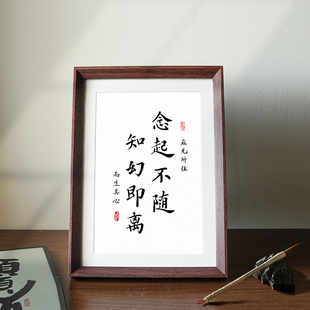 應无所住
念起不随
知幻即离
而生其心